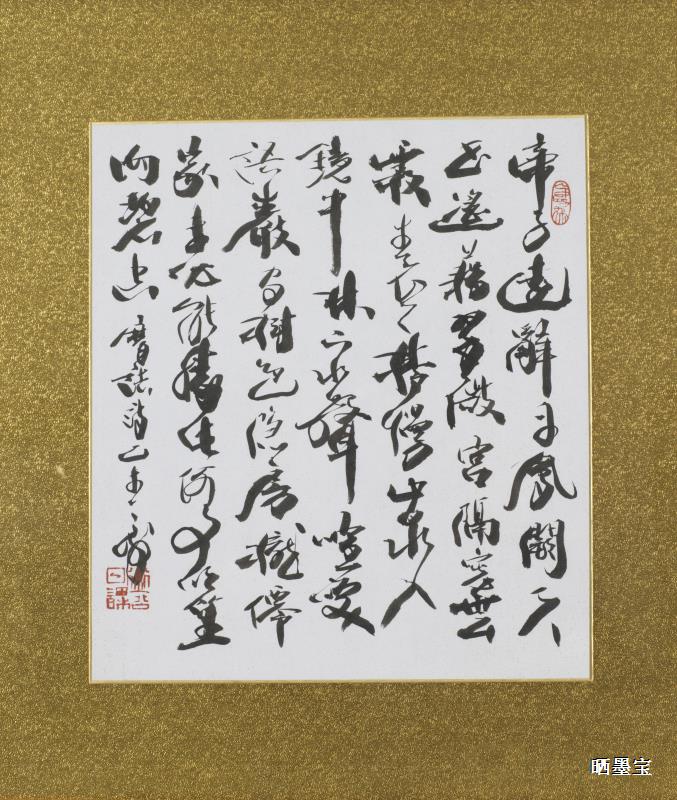 帝子遠辭丹鳳闕天
書遙藉翠微宮隔窗雲
霧生衣上捲幔山泉入
鏡中林下水聲喧笑
語巖間樹色隱房櫳僊
家未必能勝此何事吹笙
向碧空 摩詰詩 乙未
晒墨宝